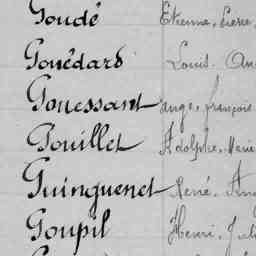 Goudé Etienne, Pierre,
Gouédard Louis. An
Gouessant ange, françois
Gouillet Adolphe, Marie
Guinguenet René. Ang
Goupil Henri, Juli